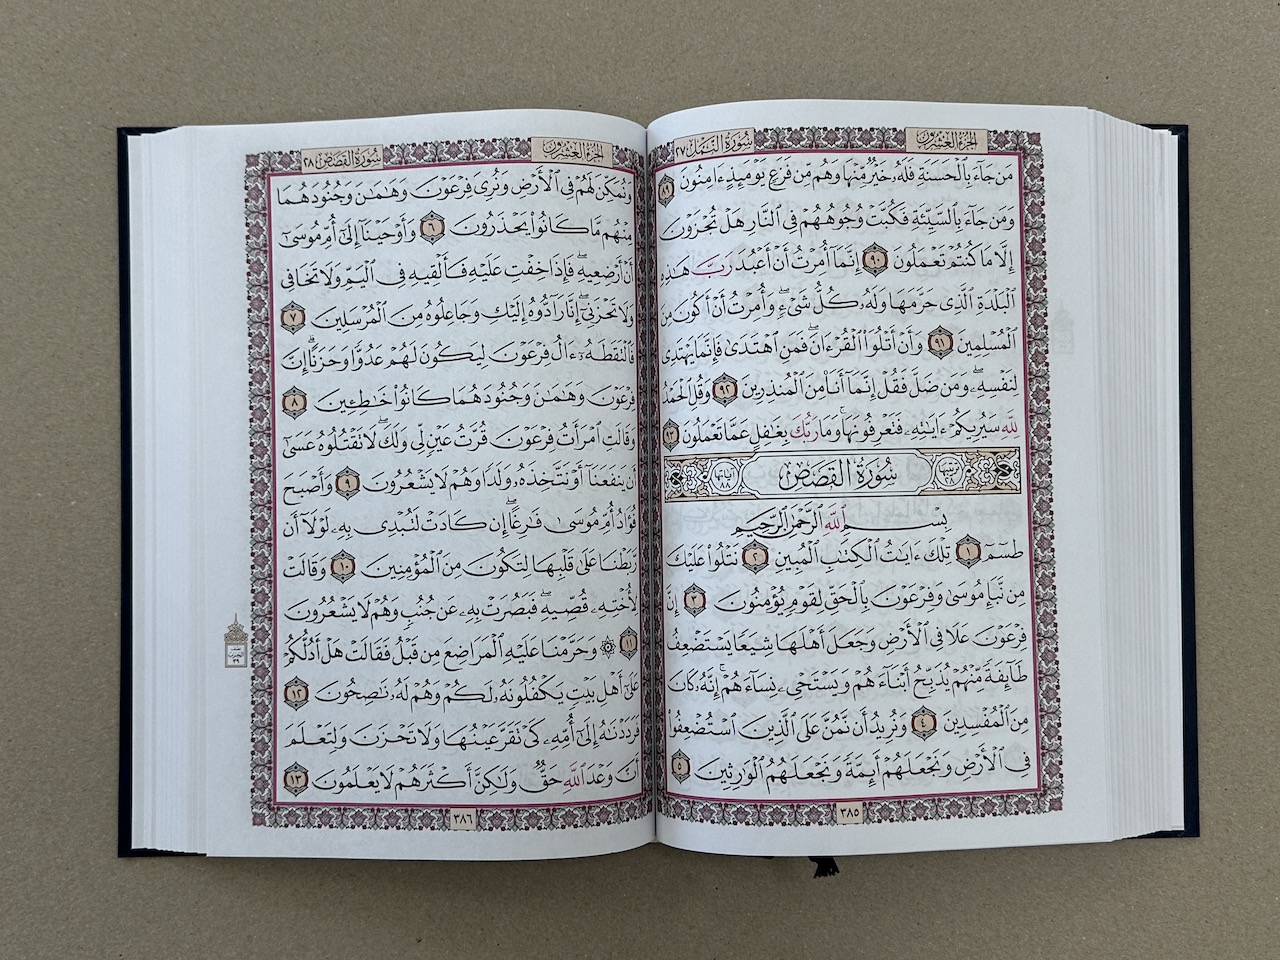 الجزء العشرون
سورة النمل ٢٧
مَن جَآءَ بِٱلْحَسَنَةِ فَلَهُۥ خَيْرٌ مِّنْهَا وَهُم مِّن فَزَعٍ يَوْمَئِذٍ ءَامِنُونَ ٨٩
وَمَن جَآءَ بِٱلسَّيِّئَةِ فَكُبَّتْ وُجُوهُهُمْ فِى ٱلنَّارِ هَلْ تُجْزَوْنَ
إِلَّا مَا كُنتُمْ تَعْمَلُونَ ٩٠ إِنَّمَآ أُمِرْتُ أَنْ أَعْبُدَ رَبَّ هَٰذِهِ
ٱلْبَلْدَةِ ٱلَّذِى حَرَّمَهَا وَلَهُۥ كُلُّ شَىْءٍ ۖ وَأُمِرْتُ أَنْ أَكُونَ مِنَ
ٱلْمُسْلِمِينَ ٩١ وَأَنْ أَتْلُوَا۟ ٱلْقُرْءَانَ ۖ فَمَنِ ٱهْتَدَىٰ فَإِنَّمَا يَهْتَدِى
لِنَفْسِهِۦ ۖ وَمَن ضَلَّ فَقُلْ إِنَّمَآ أَنَا۠ مِنَ ٱلْمُنذِرِينَ ٩٢ وَقُلِ ٱلْحَمْدُ
لِلَّهِ سَيُرِيكُمْ ءَايَٰتِهِۦ فَتَعْرِفُونَهَا ۚ وَمَا رَبُّكَ بِغَٰفِلٍ عَمَّا تَعْمَلُونَ ٩٣
ترتيبها ٢٨ سُورَةُ القَصَصِ آياتها ٨٨
بِسْمِ ٱللَّهِ ٱلرَّحْمَٰنِ ٱلرَّحِيمِ
طسٓمٓ ١ تِلْكَ ءَايَٰتُ ٱلْكِتَٰبِ ٱلْمُبِينِ ٢ نَتْلُوا۟ عَلَيْكَ
مِن نَّبَإِ مُوسَىٰ وَفِرْعَوْنَ بِٱلْحَقِّ لِقَوْمٍ يُؤْمِنُونَ ٣ إِنَّ
فِرْعَوْنَ عَلَا فِى ٱلْأَرْضِ وَجَعَلَ أَهْلَهَا شِيَعًا يَسْتَضْعِفُ
طَآئِفَةً مِّنْهُمْ يُذَبِّحُ أَبْنَآءَهُمْ وَيَسْتَحْىِۦ نِسَآءَهُمْ ۚ إِنَّهُۥ كَانَ
مِنَ ٱلْمُفْسِدِينَ ٤ وَنُرِيدُ أَن نَّمُنَّ عَلَى ٱلَّذِينَ ٱسْتُضْعِفُوا۟
فِى ٱلْأَرْضِ وَنَجْعَلَهُمْ أَئِمَّةً وَنَجْعَلَهُمُ ٱلْوَٰرِثِينَ ٥
٣٨٥
الجزء العشرون
سورة القصص ٢٨
وَنُمَكِّنَ لَهُمْ فِى ٱلْأَرْضِ وَنُرِىَ فِرْعَوْنَ وَهَٰمَٰنَ وَجُنُودَهُمَا
مِنْهُم مَّا كَانُوا۟ يَحْذَرُونَ ٦ وَأَوْحَيْنَآ إِلَىٰٓ أُمِّ مُوسَىٰٓ
أَنْ أَرْضِعِيهِ ۖ فَإِذَا خِفْتِ عَلَيْهِ فَأَلْقِيهِ فِى ٱلْيَمِّ وَلَا تَخَافِى
وَلَا تَحْزَنِىٓ ۖ إِنَّا رَآدُّوهُ إِلَيْكِ وَجَاعِلُوهُ مِنَ ٱلْمُرْسَلِينَ ٧
فَٱلْتَقَطَهُۥٓ ءَالُ فِرْعَوْنَ لِيَكُونَ لَهُمْ عَدُوًّا وَحَزَنًا ۗ إِنَّ
فِرْعَوْنَ وَهَٰمَٰنَ وَجُنُودَهُمَا كَانُوا۟ خَٰطِـِٔينَ ٨
وَقَالَتِ ٱمْرَأَتُ فِرْعَوْنَ قُرَّتُ عَيْنٍ لِّى وَلَكَ ۖ لَا تَقْتُلُوهُ عَسَىٰٓ
أَن يَنفَعَنَآ أَوْ نَتَّخِذَهُۥ وَلَدًا وَهُمْ لَا يَشْعُرُونَ ٩ وَأَصْبَحَ
فُؤَادُ أُمِّ مُوسَىٰ فَٰرِغًا ۖ إِن كَادَتْ لَتُبْدِى بِهِۦ لَوْلَآ أَن
رَّبَطْنَا عَلَىٰ قَلْبِهَا لِتَكُونَ مِنَ ٱلْمُؤْمِنِينَ ١٠ وَقَالَتْ
لِأُخْتِهِۦ قُصِّيهِ ۖ فَبَصُرَتْ بِهِۦ عَن جُنُبٍ وَهُمْ لَا يَشْعُرُونَ
١١ ۞ وَحَرَّمْنَا عَلَيْهِ ٱلْمَرَاضِعَ مِن قَبْلُ فَقَالَتْ هَلْ أَدُلُّكُمْ
عَلَىٰٓ أَهْلِ بَيْتٍ يَكْفُلُونَهُۥ لَكُمْ وَهُمْ لَهُۥ نَٰصِحُونَ ١٢
فَرَدَدْنَٰهُ إِلَىٰٓ أُمِّهِۦ كَىْ تَقَرَّ عَيْنُهَا وَلَا تَحْزَنَ وَلِتَعْلَمَ
أَنَّ وَعْدَ ٱللَّهِ حَقٌّ وَلَٰكِنَّ أَكْثَرَهُمْ لَا يَعْلَمُونَ ١٣
٣٨٦